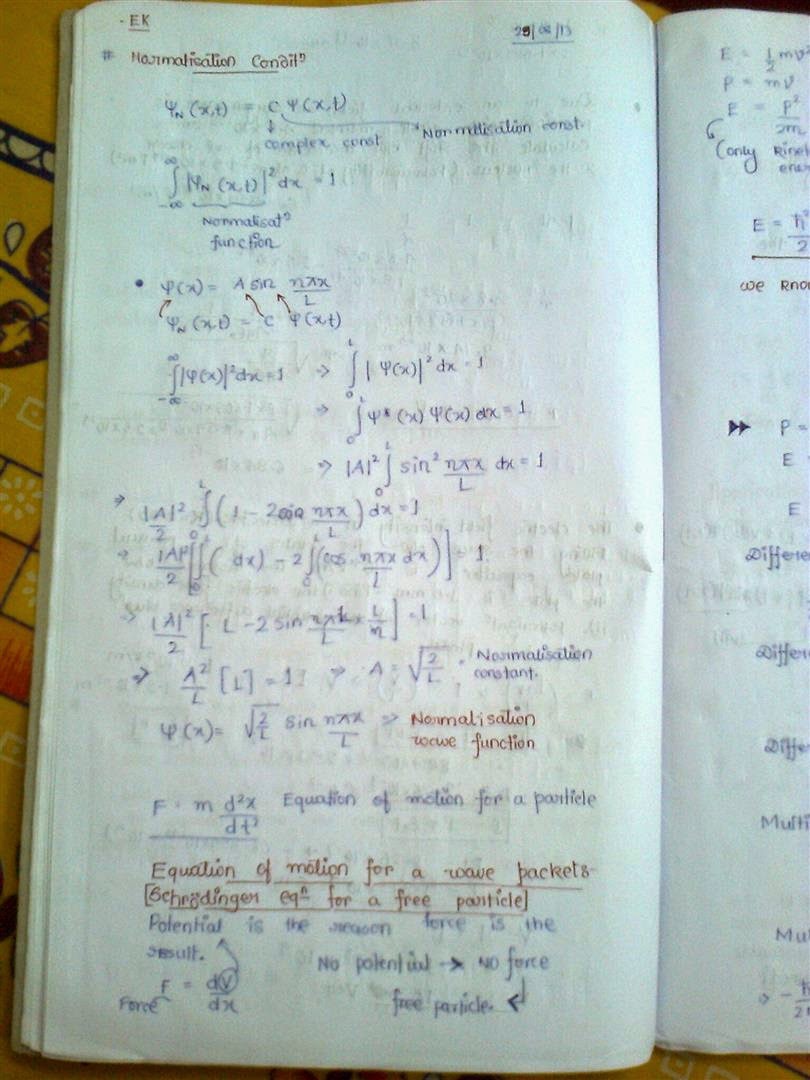 - EK
29/08/13
# Normalisation Conditⁿ
Ψ_N (x,t) = C Ψ(x,t)
↓ → Normalisation const.
complex const
∫_{-∞}^{∞} |Ψ_N (x,t)|² dx = 1
Normalisatⁿ
function
• Ψ(x) = A sin nπx/L
Ψ_N (x,t) = C Ψ(x,t)
∫_{-∞}^{∞} |Ψ(x)|² dx = 1 ⇒ ∫_0^L | Ψ(x)|² dx = 1
⇒ ∫_0^L Ψ* (x) Ψ(x) dx = 1
⇒ |A|² ∫_0^L sin² nπx/L dx = 1
⇒ |A|²/2 ∫_0^L ( 1 - 2 nπx/L ) dx = 1
⇒ |A|²/2 [ ∫_0^L ( dx) - 2 ∫_0^L (cos nπx/L dx ) ] = 1
⇒ |A|²/2 [ L - 2 sin nπL/L × L/n ] = 1
⇒ A²/L [L] = 1 ⇒ A = √(2/L) = Normalisation
constant.
Ψ(x) = √(2/L) sin nπx/L ⇒ Normalisation
wave function
F = m d²x/dt² Equation of motion for a particle
Equation of motion for a wave packets-
[Schrödinger eqⁿ for a free particle]
Potential is the reason force is the
result.
No potential → No force
F = dV/dx
Force
free particle. ↵
E = 1/2 mv²
P = mv
E = P²/2m
(only
E = ħ
2
we kno
▸▸ P =
E =
E
Differe
Differ
Differ
Multi
Mu
⇒ - ħ